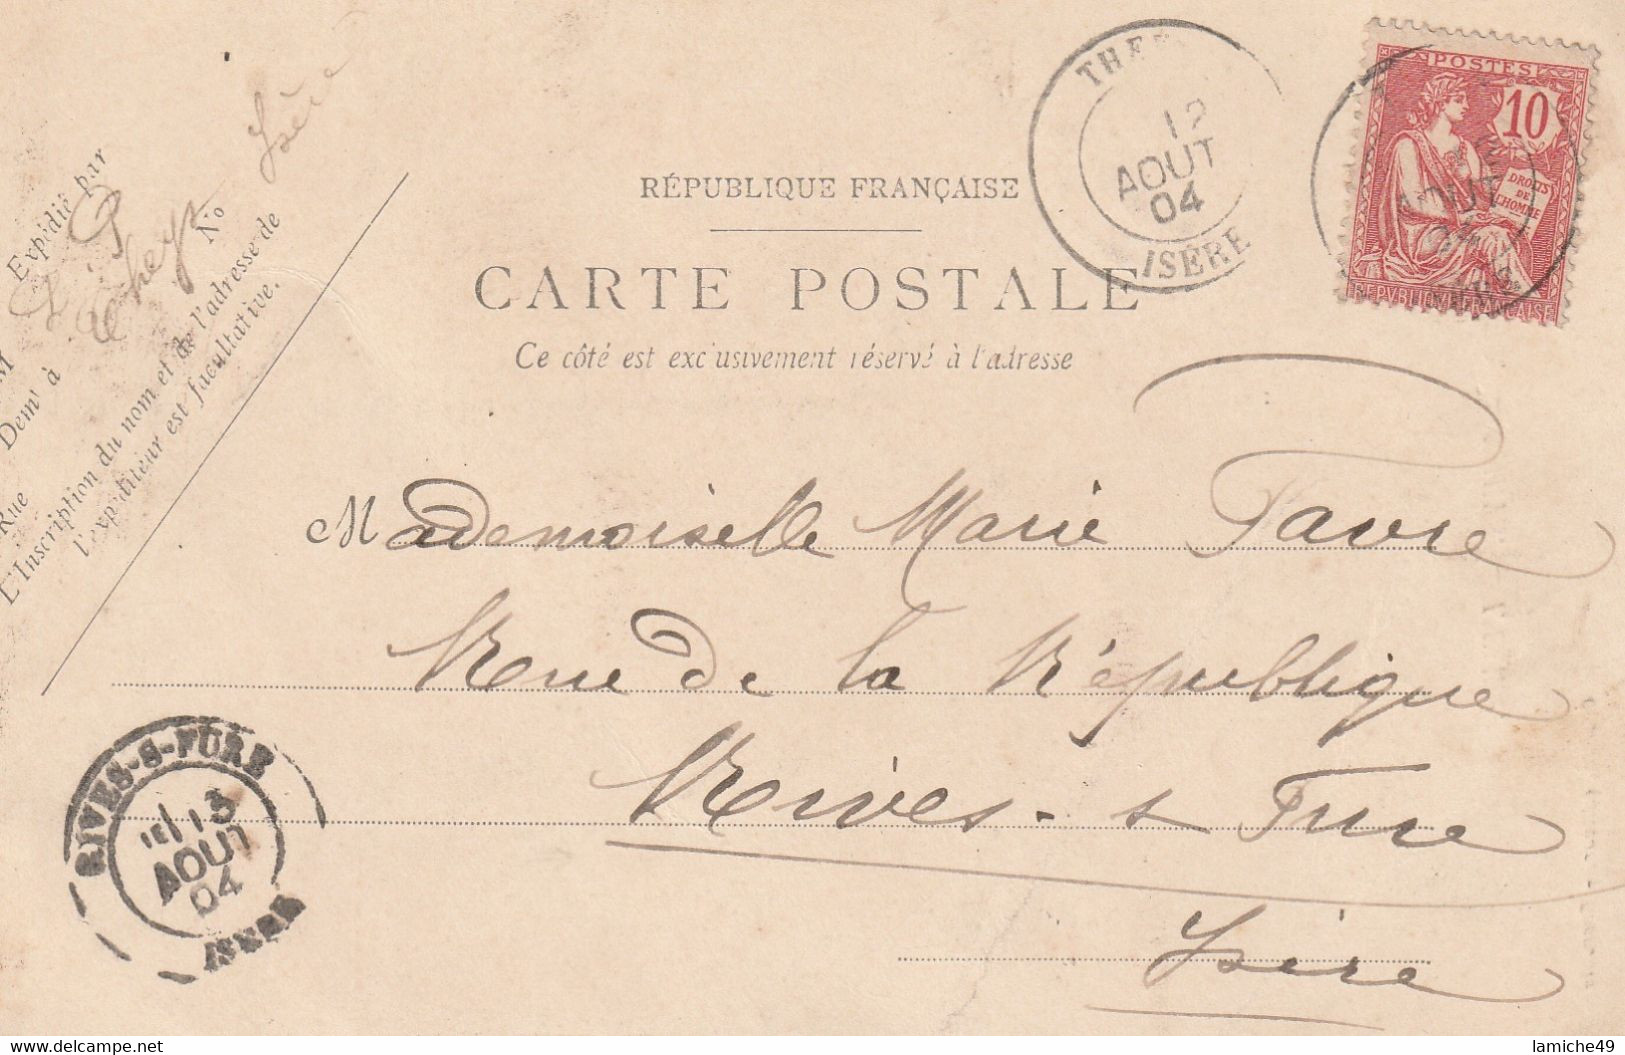 Expédié par
M
Demt à
Rue No
L'Inscription du nom et de l'adresse de
l'expéditeur est facultative.
Isère
RÉPUBLIQUE FRANÇAISE
CARTE POSTALE
Ce côté est exclusivement réservé à l'adresse
12
AOUT
04
ISÈRE
POSTES
10
DROITS
DE
L'HOMME
REPVBLIQVE FRANÇAISE
AOUT
04
Mademoiselle Marie Favre
Rue de la République
Rives-s Fure
Isère
RIVES-S-FURE
13
AOUT
04
ISERE
www.delcampe.net
lamiche49